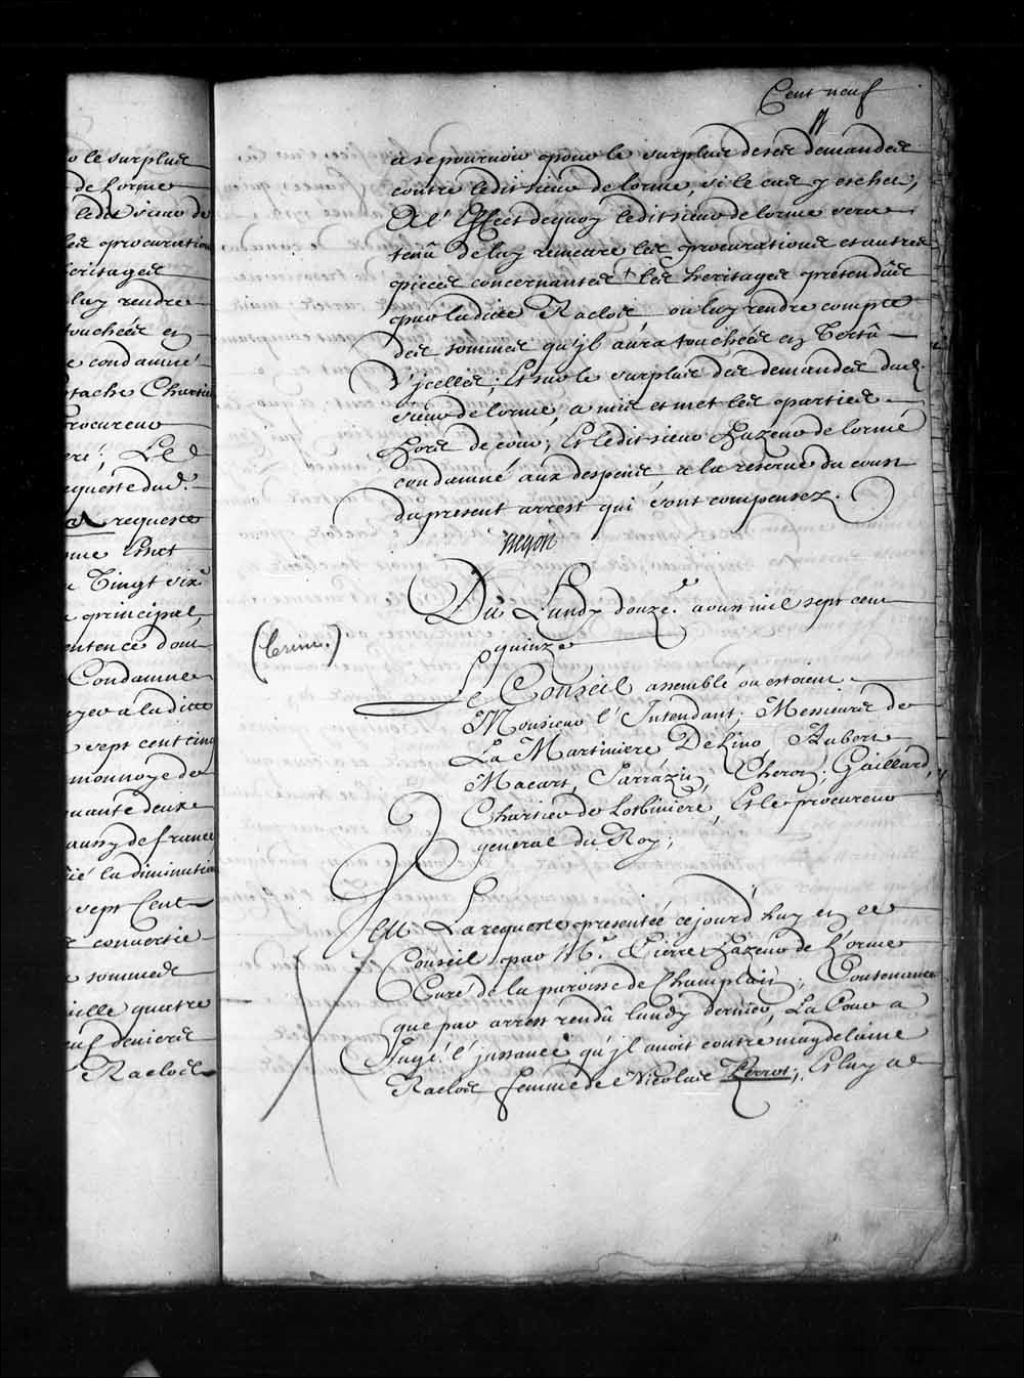 o le surplus
de Lorme
ledit sieur de
les procuration
heritages
luy rendre
touchées en
e condamné
stache Chartier
Procureur
eré; Le d
equeste dud.
requeste
me
Vingt six
principal,
entence dont
Condamne
yer a la dite
sept cent cinq
monnoye de
quante deux
aussy de france
la diminution
sept Cent
convertie
e somme de
mille quatre
euf deniers
Raclos
Cent neuf
a se pourvoir pour le surplus de ses demandes
contre ledit sieur de lorme, si le cas y eschet,
A l'Effect de quoy ledit sieur de lorme sera
tenû de luy remettre les procurations et autres
pieces concernantes les heritages prétendûs
par ladite Raclos, ou luy rendre compte
des sommes qu'jl aura touchées en Vertû
d'jcelles; Et sur le surplus des demandes dud.
sieur de lorme, a mis et met les parties
Hors de cour; Et ledit sieur Hazeur de lorme
condamné aux despens, a la reserve du coust
du present arrest qui sont compensez.
Begon
Du Lundy douze.e aoust mil sept cent
quinze
Le Conseil assemblé ou estoient
Monsieur l'Intendant; Messieurs de
La Martiniere De Lino, Aubert
Macart, Sarrazin, Cheron; Gaillard,
Chartier de Lotbiniere, Et le procureur
general du Roy;
Veu La requeste presentée ce jourd'huy en ce
Conseil par M.e Pierre Hazeur de L'orme
Curé de la paroisse de Champlain; Contenant
que par arrest rendû lundy dernier, La Cour a
Jugé l'jnstance qu'jl avoit contre magdelaine
Raclos femme de Nicolas Perrot; Et luy a